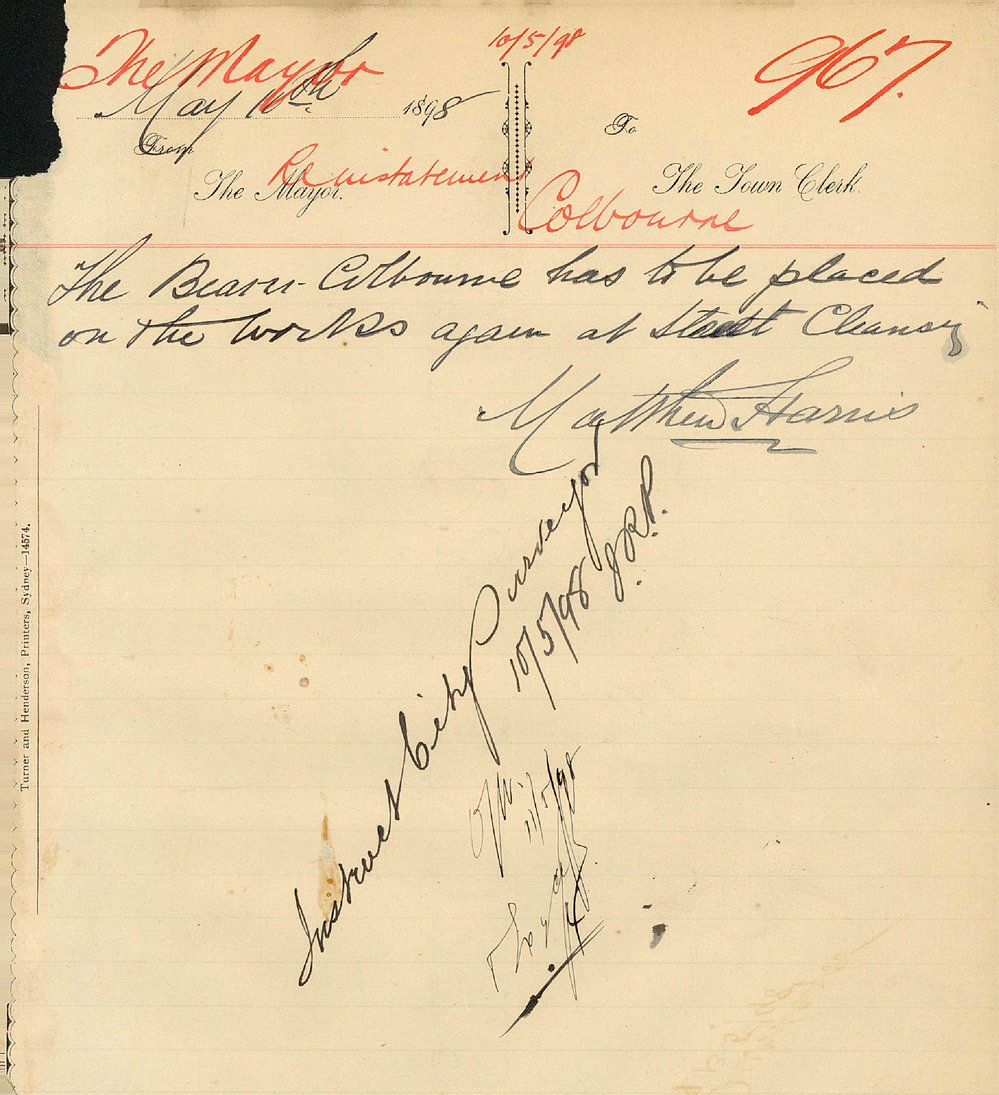 The Mayor
10/5/98
967.
May 10th 1898
From
To
The Mayor.
Reinstatement
The Town Clerk.
Colbourne
The Bearer Colbourne has to be placed
on the works again at Street Cleansg
Matthew Harris
Instruct City Surveyor
10/5/98 J.R.P.
11/5/98
Turner and Henderson, Printers, Sydney—14574.